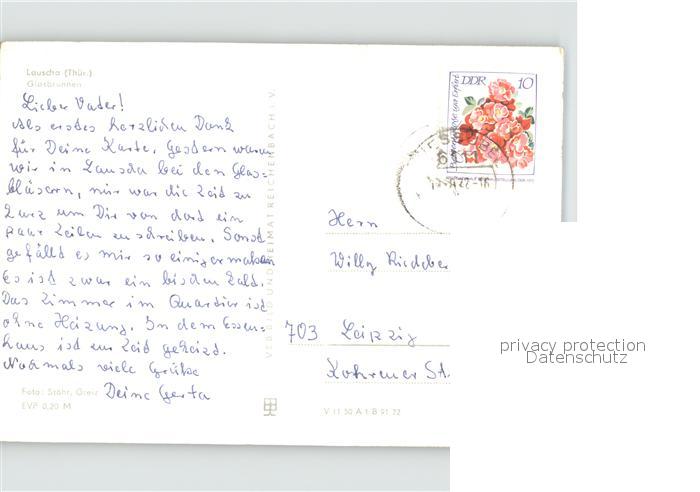 Lauscha (Thür.)
Glasbrunnen
Lieber Vater!
Als erstes herzlichen Dank
für Deine Karte. Gestern waren
wir in Lauscha bei den Glas=
bläsern, nur war die Zeit zu
kurz um Dir von dort ein
paar Zeilen zu schreiben. Sonst
gefällt es mir so einigermaßen
Es ist zwar ein bischen kalt.
Das Zimmer im Quartier ist
ohne Heizung. In dem Essen=
haus ist zur Zeit geheizt.
Nochmals viele Grüße
Deine Gerta
Foto: Stöhr, Greiz
EVP 0,20 M
VEB BILD UND HEIMAT REICHENBACH i. V.
DDR 10
Herrn
Willy
703 Leipzig
Kohrener St.
V 11 50 A 1 B 91 72
privacy protection
Datenschutz